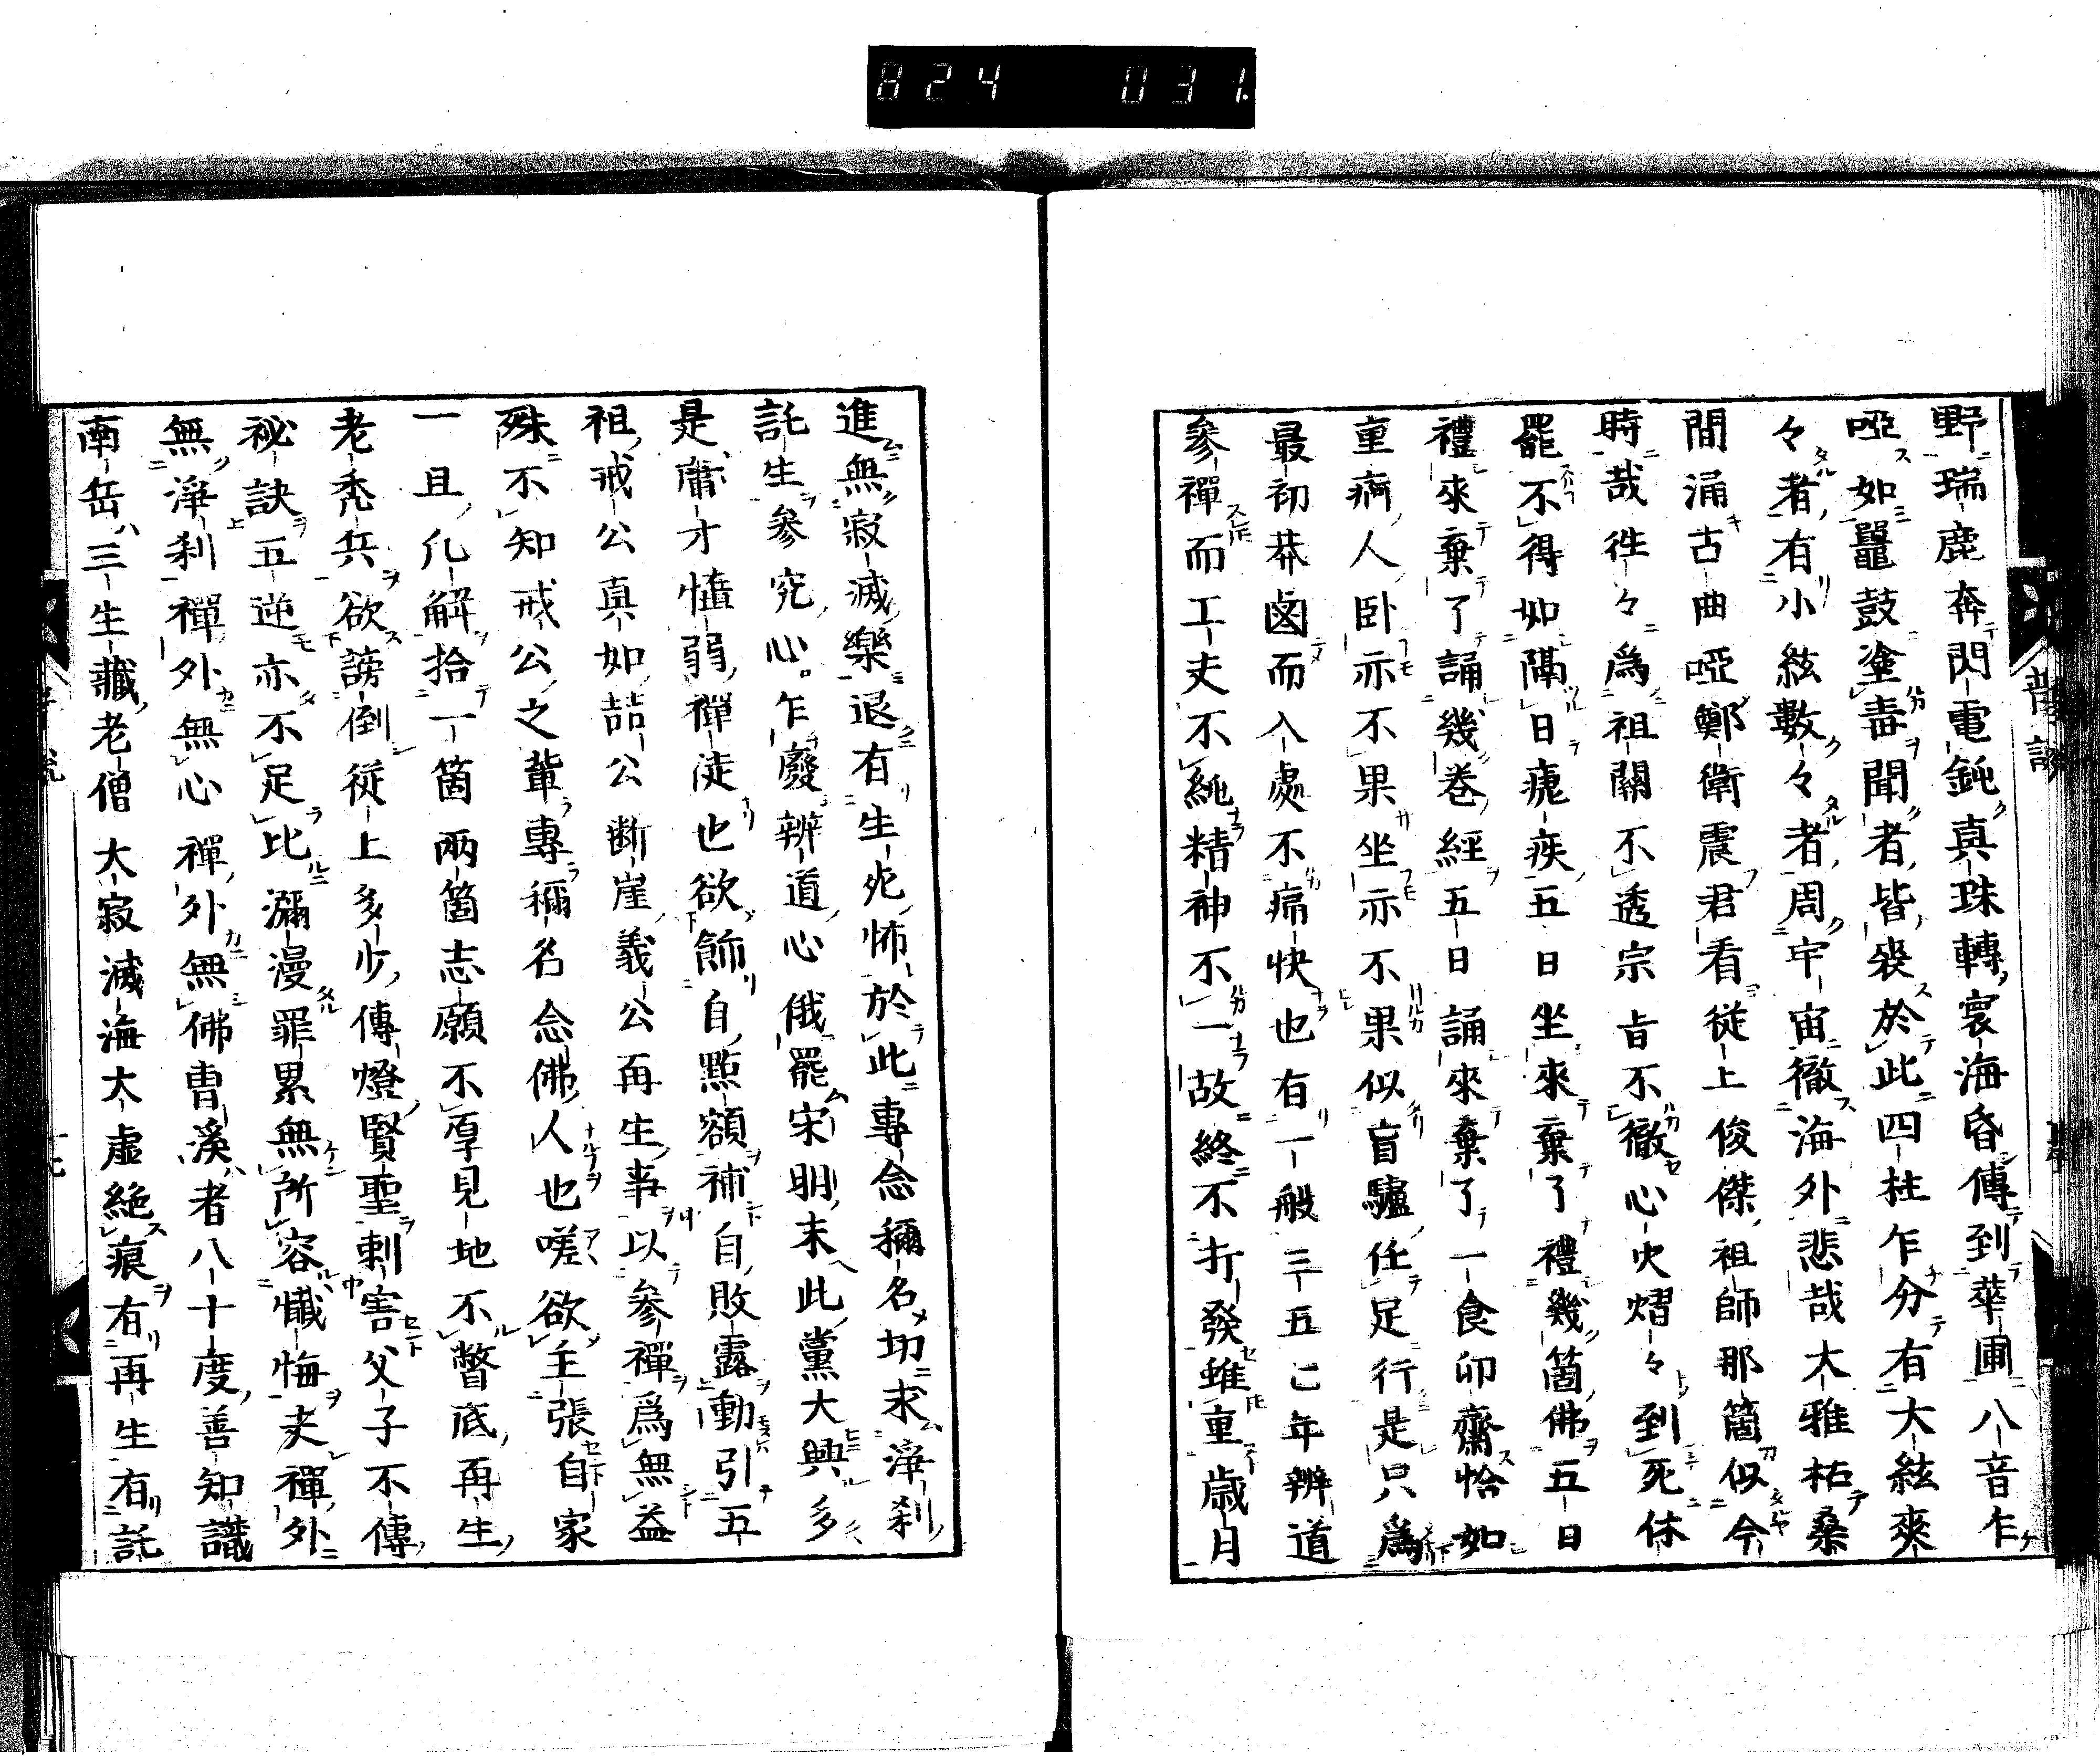 824 031.
野瑞鹿奔閃電鈍真珠轉寰海昏傳到華圃八音乍
啞如鼉鼓塗毒聞者皆喪於此四柱乍分有大絃來
々者有小絃數々者周宇宙徹海外悲哉大雅枯桑
間涌古曲啞鄭衛震君看從上俊傑祖師那箇似今
時哉徃々爲祖關不透宗旨不徹心火熠々到死休
罷不得如隔日瘧疾五日坐來棄了禮幾箇佛五日
禮來棄了誦幾卷經五日誦來棄了一食卯齋恰如
重病人臥亦不果坐亦不果似盲驢任足行是只爲
最初莽鹵而入處不痛快也有一般三五七年辨道
參禪而工夫不純精神不一故終不打發雖重歳月
進無寂滅樂退有生死怖於此專念稱名切求淨刹
託生參究心乍廢辨道心俄罷宋明末此黨大興多
是庸才懦弱禪徒也欲飾自點額補自敗露動引五
祖戒公真如喆公断崖義公再生事以參禪爲無益
殊不知戒公之輩專稱名念佛人也嗟欲主張自家
一且凡解拾一箇兩箇志願不厚見地不瞥底再生
老禿兵欲謗倒從上多少傳燈賢聖刺害父子不傳
祕訣五逆亦不足比瀰漫罪累無所容懺悔夫禪外
無淨刹禪外無心禪外無佛曹溪者八十度善知識
南岳三生藏老僧大寂滅海大虚絶痕有再生有託